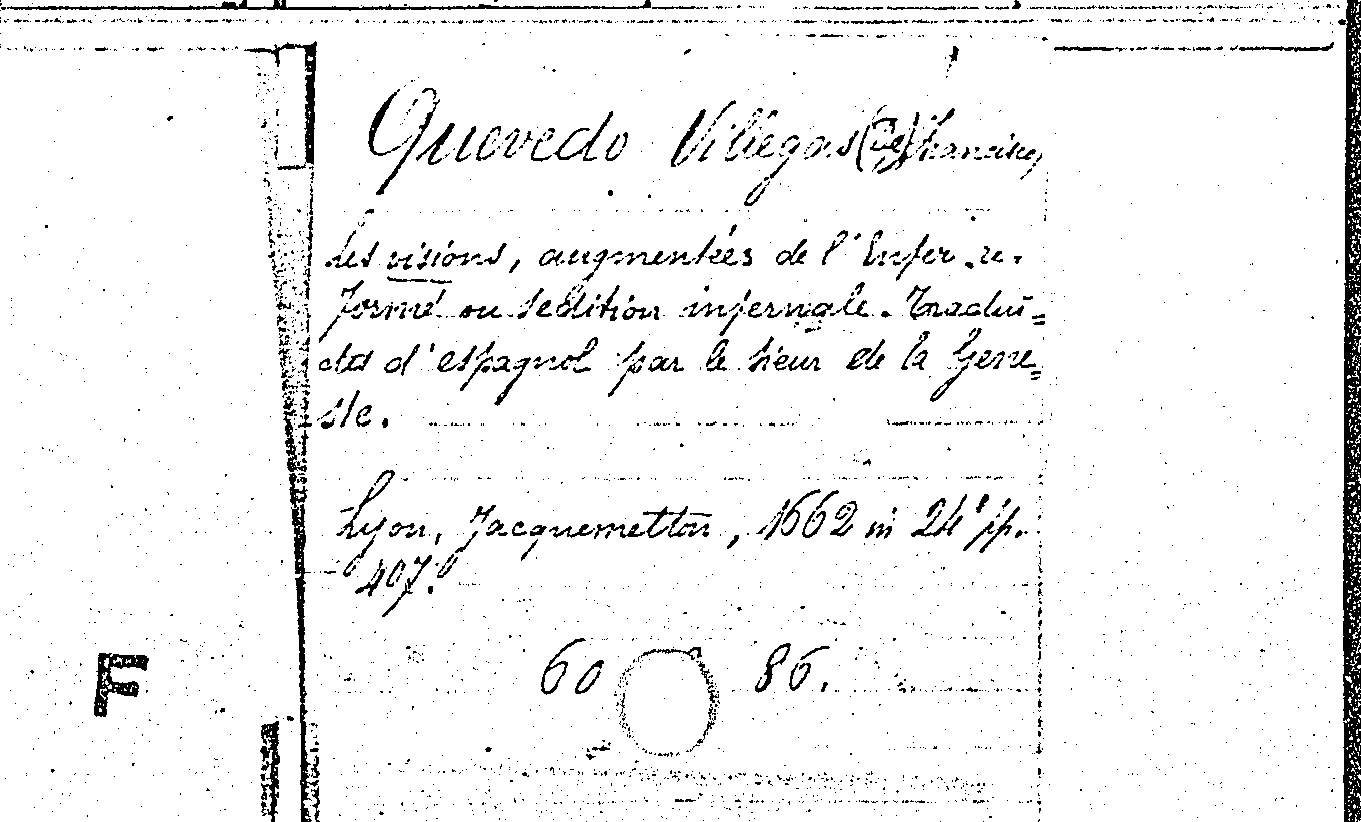 Quevedo Villegas (de) Francisco,
Les visions, augmentées de l'Enfer re-
formé ou sedition infernale. Tradui=
ctes d'espagnol par le sieur de la Gene=
ste.
Lyon, Jacquemetton, 1662 in 24° pp.
407.
60 86.
F